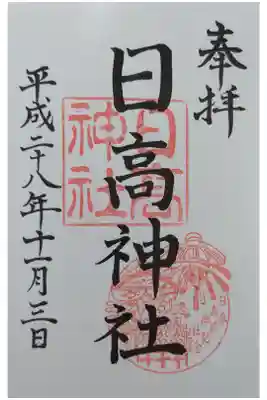 奉拝
日高神社
日高
神社
平成二十八年十一月三日